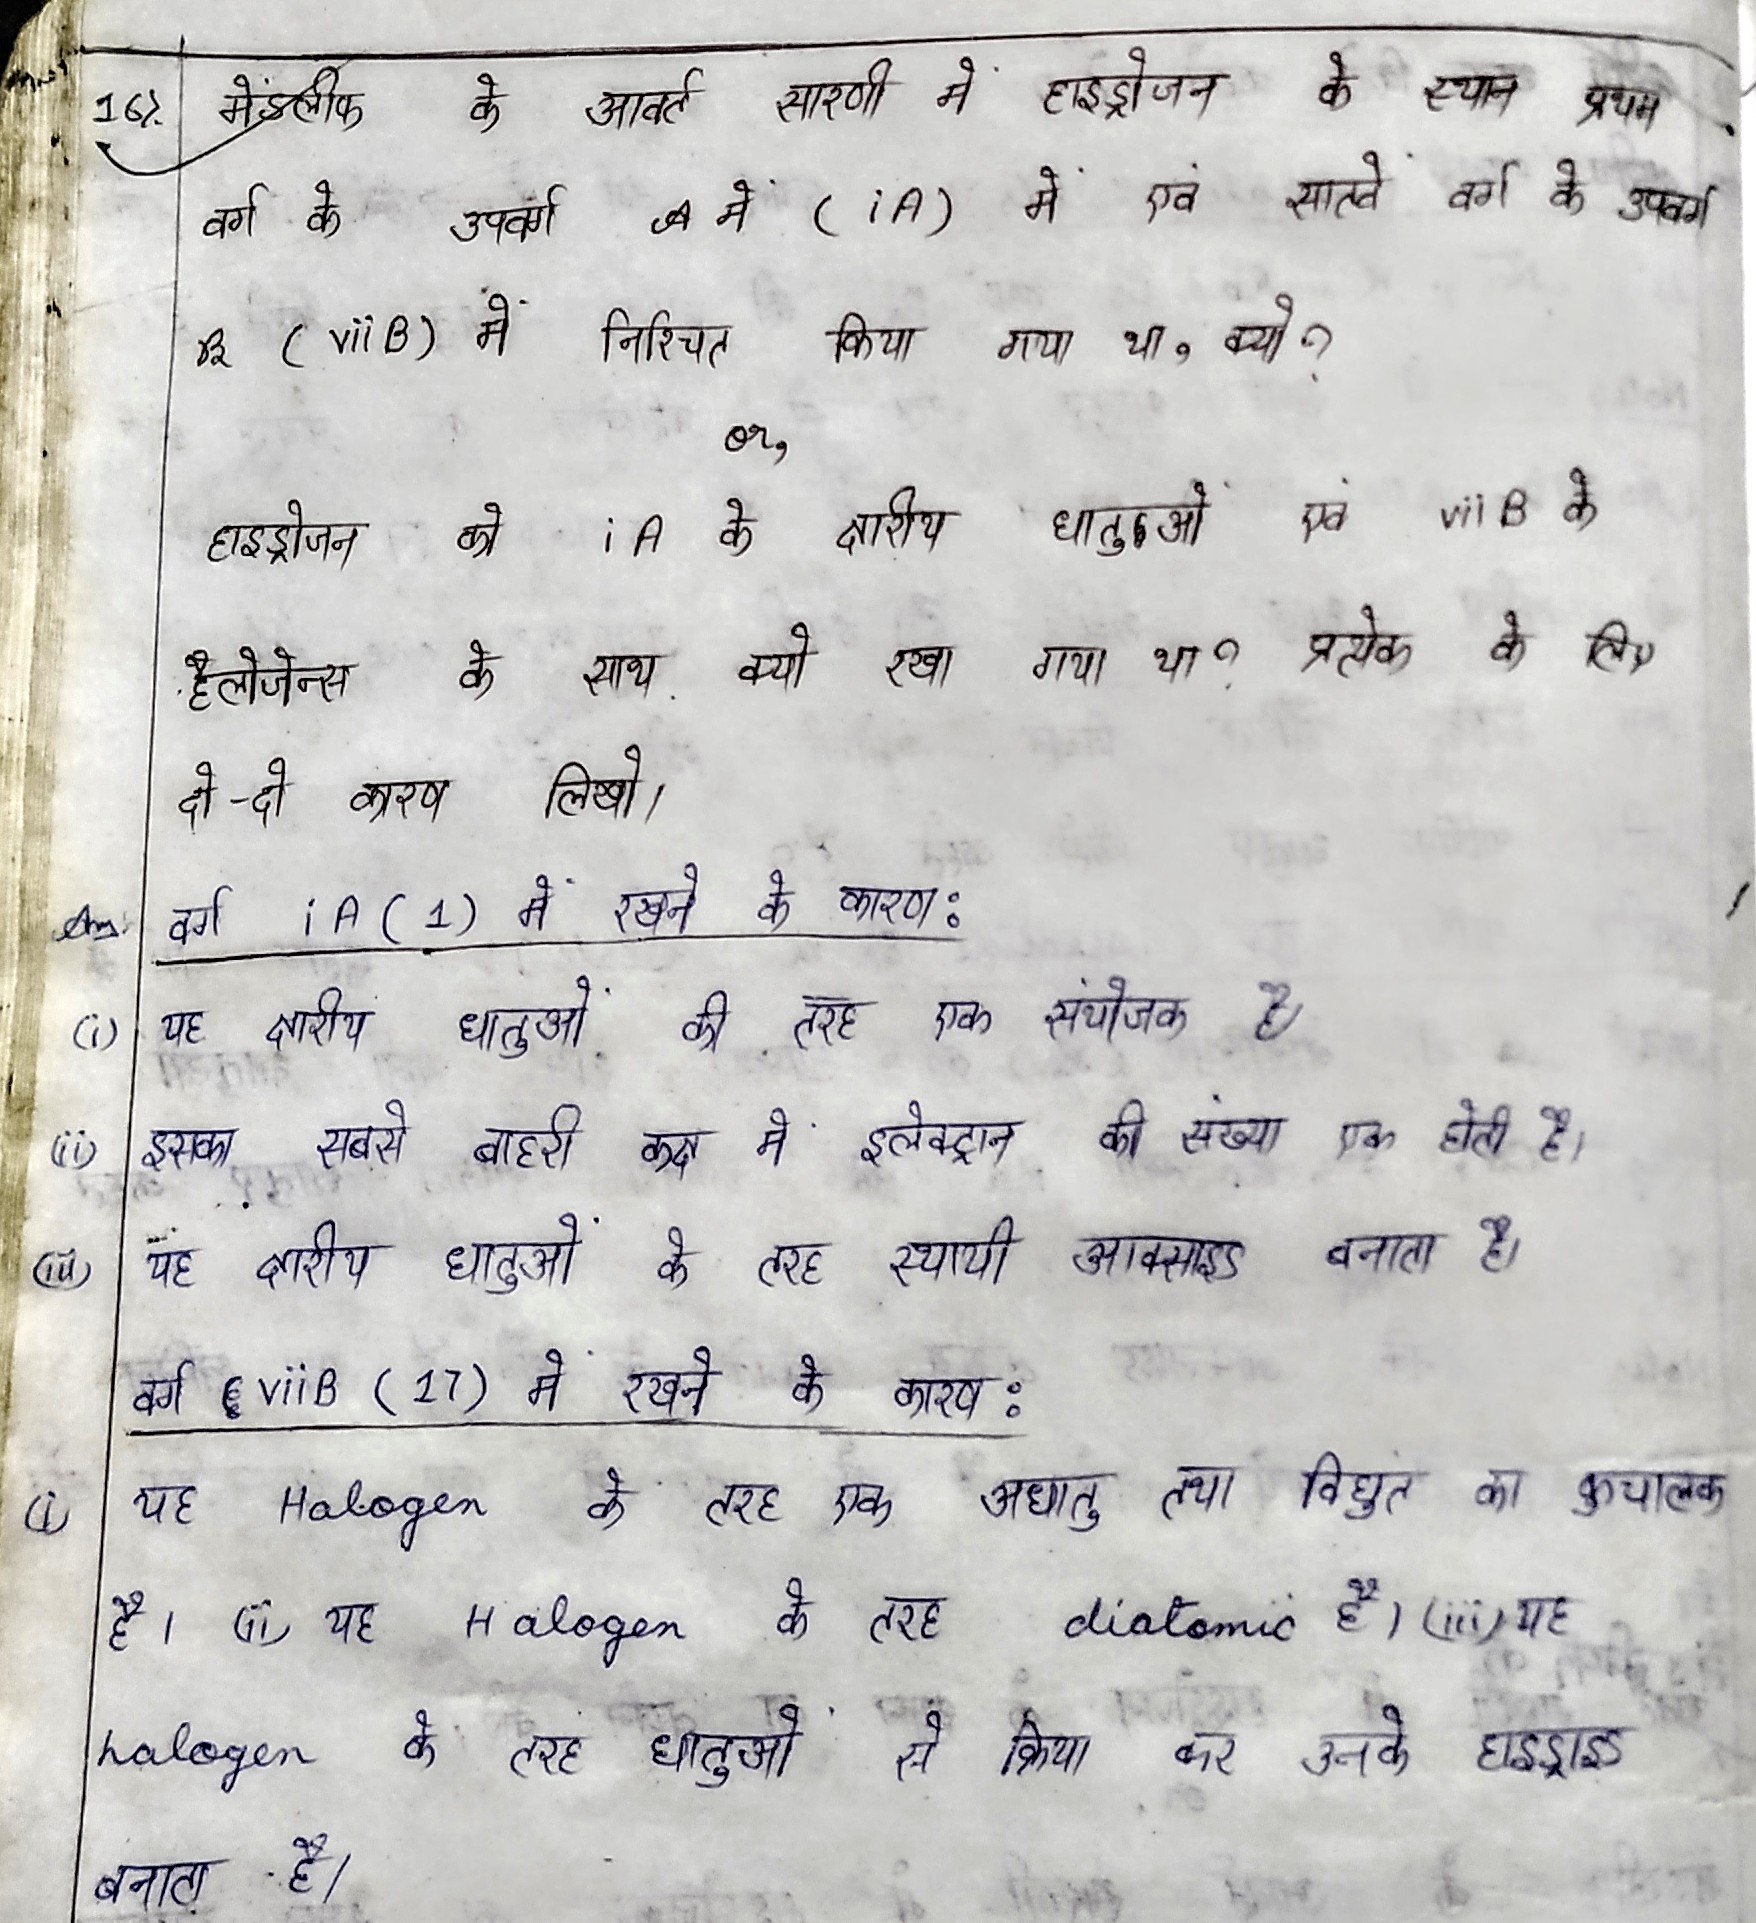 16). मेंडलीफ के आवर्त सारणी में हाइड्रोजन के स्थान प्रथम
वर्ग के उपवर्ग A में ( iA ) में एवं सातवें वर्ग के उपवर्ग
B ( viiB ) में निश्चित किया गया था, क्यों?
or,
हाइड्रोजन को iA के क्षारीय धातुओं एवं viiB के
हैलोजेन्स के साथ क्यो रखा गया था? प्रत्येक के लिए
दो-दो कारण लिखो।
Ans. वर्ग iA ( 1 ) में रखने के कारण:
(i) यह क्षारीय धातुओं की तरह एक संयोजक है।
(ii) इसका सबसे बाहरी कक्ष में इलेक्ट्रान की संख्या एक होती है।
(iii) यह क्षारीय धातुओं के तरह स्थायी आक्साइड बनाता है।
वर्ग viiB ( 17 ) में रखने के कारण:
(i) यह Halogen के तरह एक अधातु तथा विधुत का कुचालक
है। (ii) यह Halogen के तरह diatomic है। (iii) यह
halogen के तरह धातुओं से क्रिया कर उनके हाइड्राइड
बनाता है।